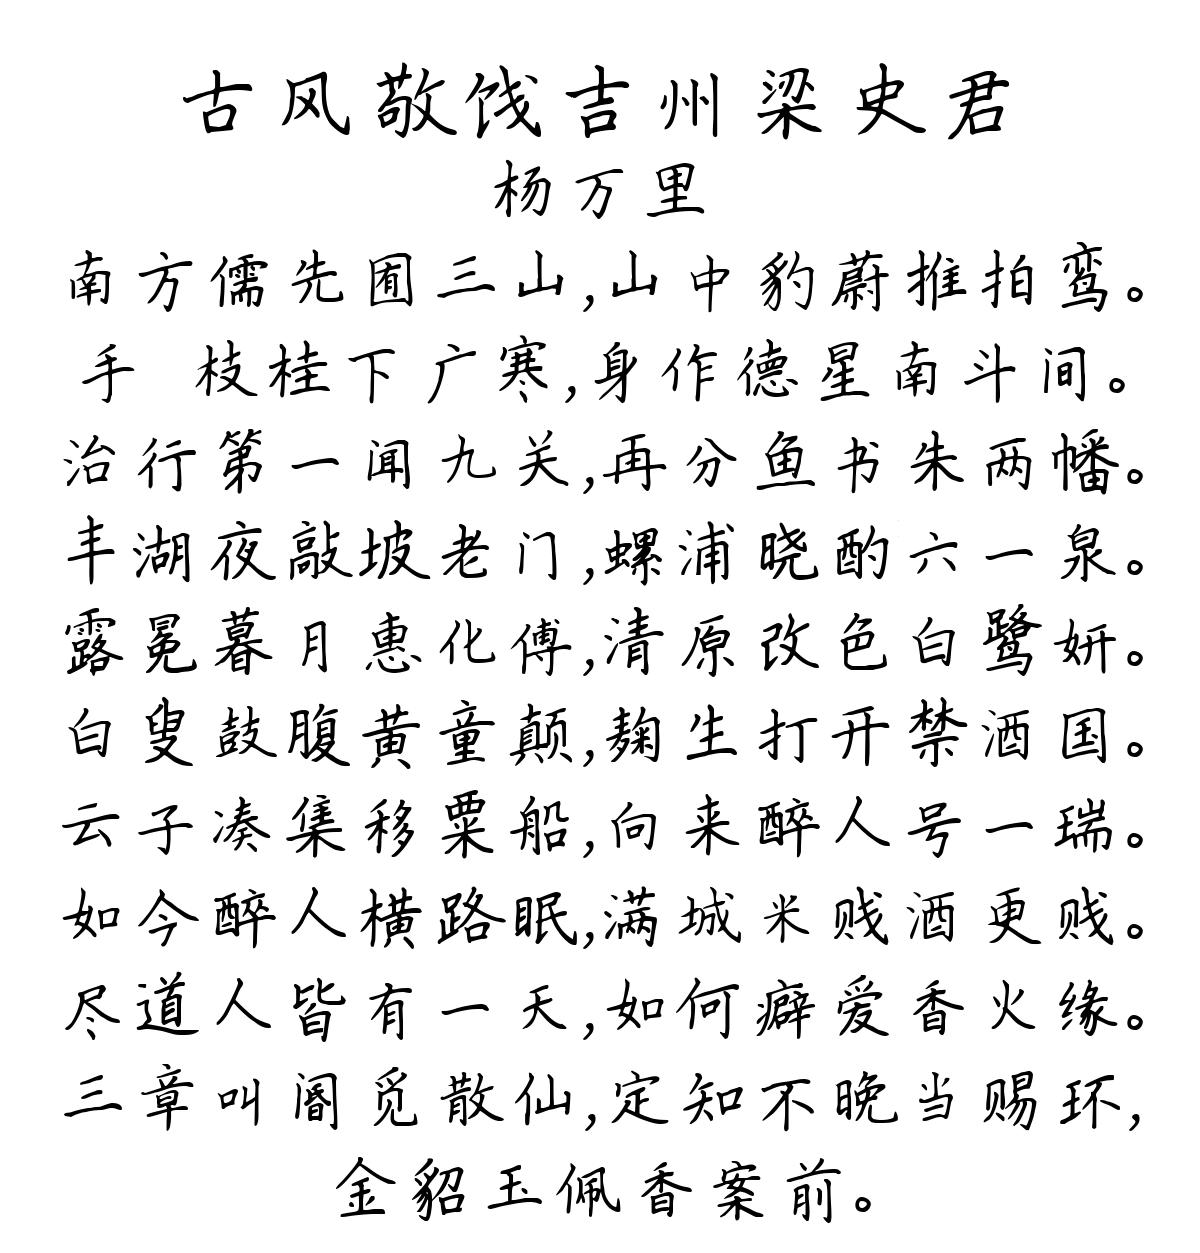 古风敬饯吉州梁史君
杨万里
南方儒先囿三山,山中豹蔚推拍鸾。
手 枝桂下广寒,身作德星南斗间。
治行第一闻九关,再分鱼书朱两幡。
丰湖夜敲坡老门,螺浦晓酌六一泉。
露冕暮月惠化傅,清原改色白鹭妍。
白叟鼓腹黄童颠,麹生打开禁酒国。
云子凑集移粟船,向来醉人号一瑞。
如今醉人横路眠,满城米贱酒更贱。
尽道人皆有一天,如何癖爱香火缘。
三章叫阍觅散仙,定知不晚当赐环,
金貂玉佩香案前。